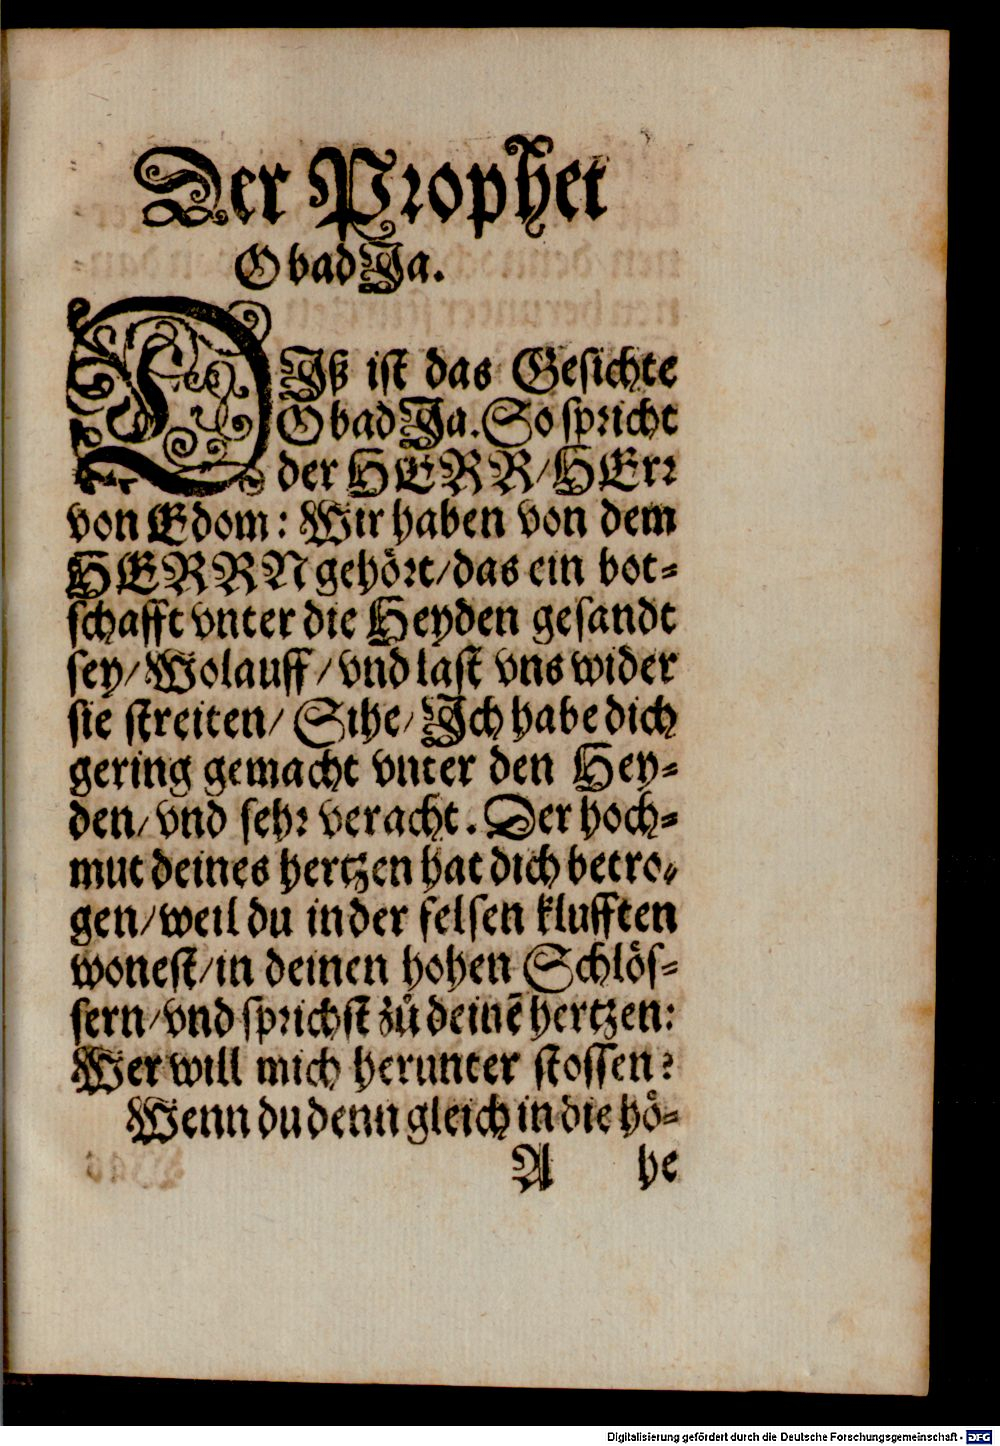 Der Prophet
ObadJa.
DJß ist das Gesichte
ObadJa. So spricht
der HERR/HErr
von Edom: Wir haben von dem
HERRN gehört/das ein bot-
schafft vnter die Heyden gesandt
sey/Wolauff/vnd last vns wider
sie streiten/Sihe/Jch habe dich
gering gemacht vnter den Hey-
den/vnd sehr veracht. Der hoch-
mut deines hertzen hat dich betro-
gen/weil du in der felsen klufften
wonest/in deinen hohen Schlös-
sern/vnd sprichst zů deinẽ hertzen:
Wer will mich herunter stossen?
Wenn du denn gleich in die hö-
A he
Digitalisierung gefördert durch die Deutsche Forschungsgemeinschaft - DFG